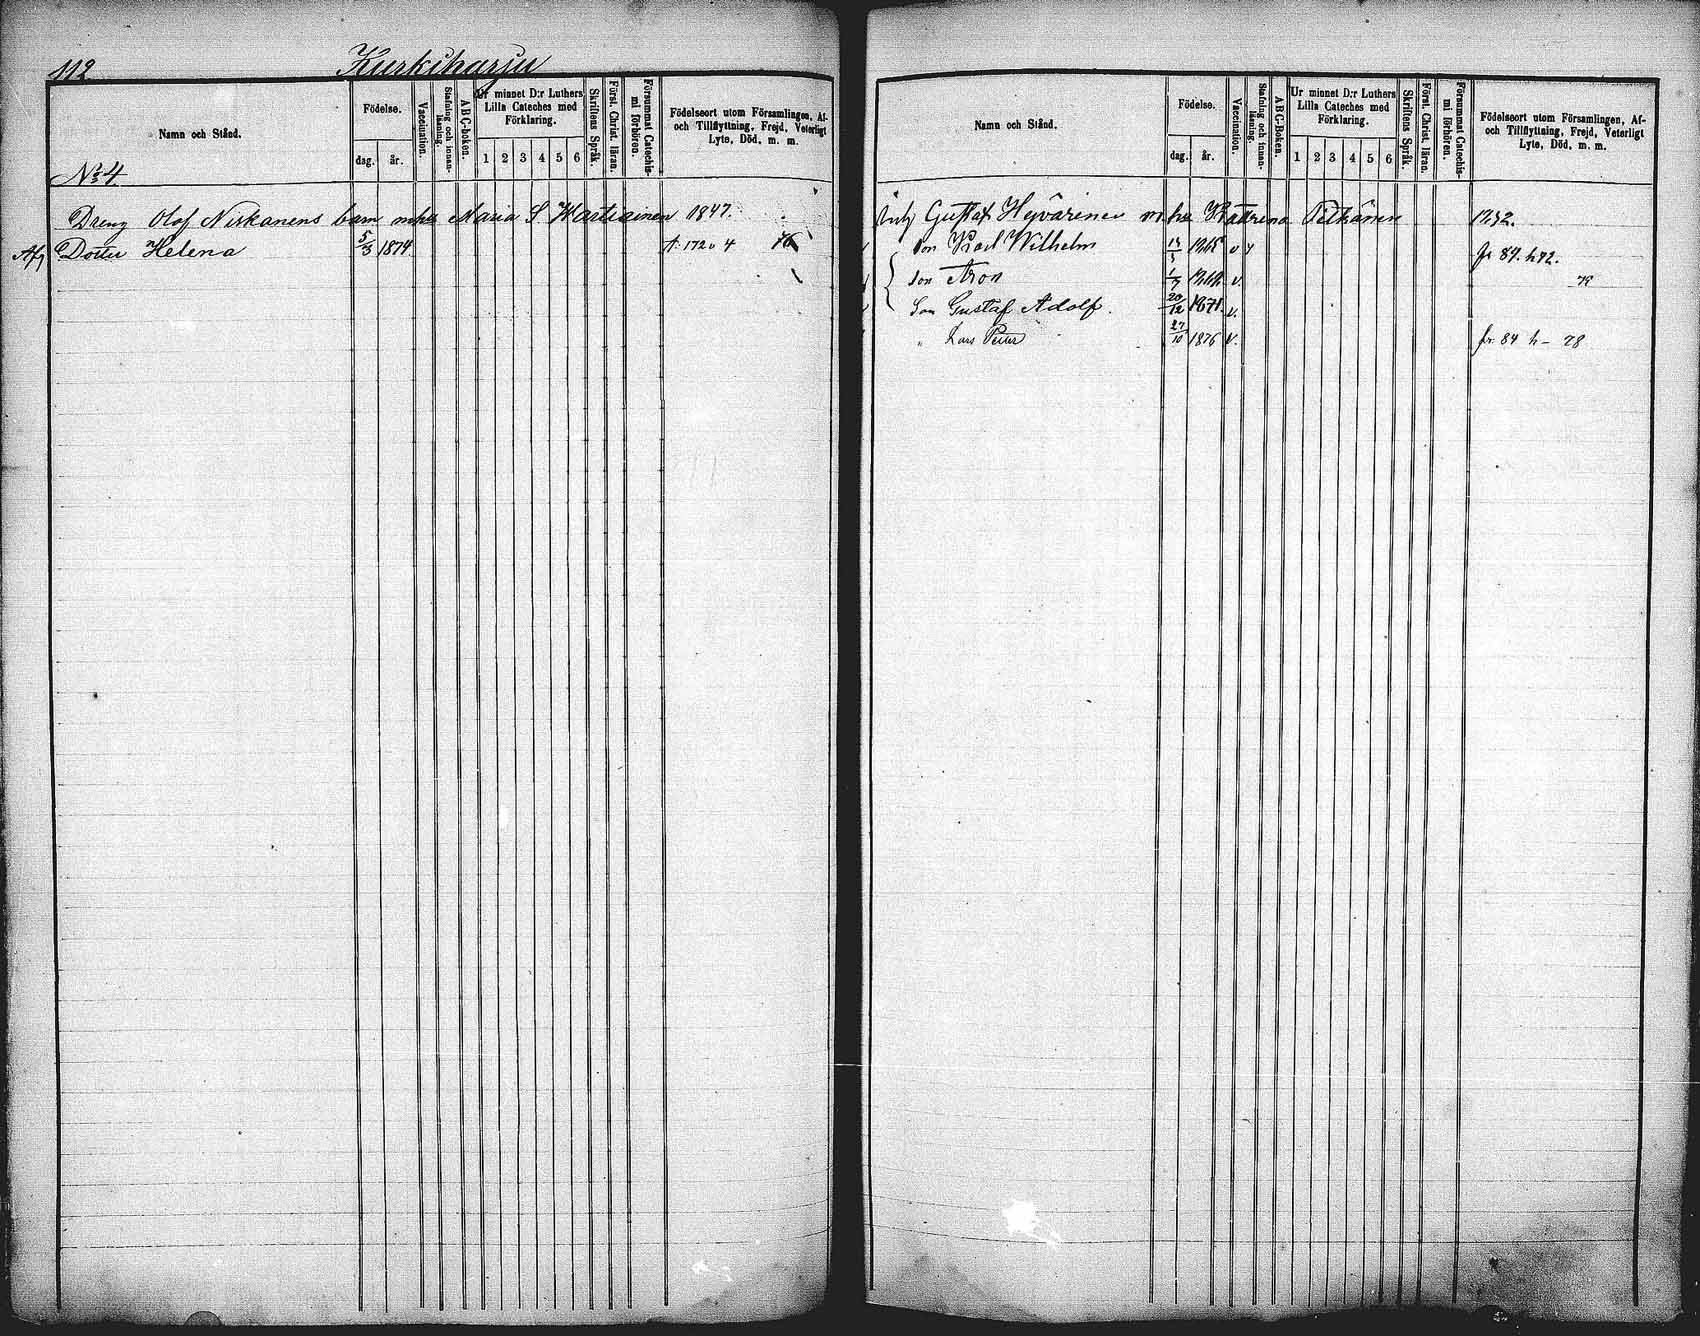 112 Kurkiharju
Namn och Stånd.
Födelse.
dag. år.
Vaccination.
Stafning och innanläsning.
ABC-boken.
Ur minnet D:r Luthers Lilla Cateches med Förklaring.
1 2 3 4 5 6
Skriftens Språk.
Först. Christ. läran.
Försummat Catechismi förhören.
Födelseort utom Församlingen, Af- och Tillflyttning, Frejd, Veterligt Lyte, Död, m. m.
No 4
Dreng Olof Niskanens barn m hu Maria S Martiainen 1847.
Afg Dotter Helena 5/3 1874. 172 4
Namn och Stånd.
Födelse.
dag. år.
Vaccination.
Stafning och innanläsning.
ABC-Boken.
Ur minnet D:r Luthers Lilla Cateches med Förklaring.
1 2 3 4 5 6
Skriftens Språk.
Först. Christ. läran.
Försummat Catechismi förhören.
Födelseort utom Församlingen, Af- och Tillflyttning, Frejd, Veterligt Lyte, Död, m. m.
Gustaf Hyvärinen m hu Katrina Pelkonen
Son Karl Wilhelm 1865 v fr 84. h 72.
Son Aron v.
Son Gustaf Adolf. 20/12 1871. v.
" Lars Petter 27/10 1876 v. fr. 84 h - 78